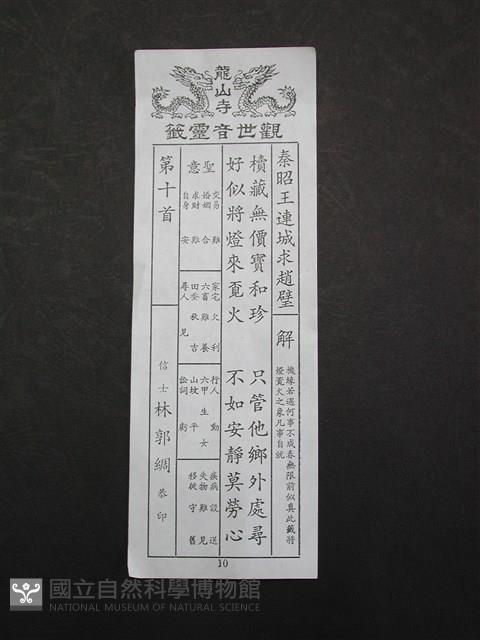 龍山寺
觀世音靈籤
秦昭王連城求趙璧
解
機緣若遇何事不成春無限前似真此籤將
燈覓火之象凡事自就
櫝藏無價寶和珍　只管他鄉外處尋
好似將燈來覓火　不如安靜莫勞心
聖意
交易　難
婚姻　合
求財　難
自身　安
家宅　欠利
六畜　難養
田蚕　秋吉
尋人　見
行人　動
六甲　生女
山坟　平
訟詞　虧
疾病　設送
失物　難見
移徙　守舊
第十首
信士　林郭綢　恭印
10
國立自然科學博物館
NATIONAL MUSEUM OF NATURAL SCIENCE